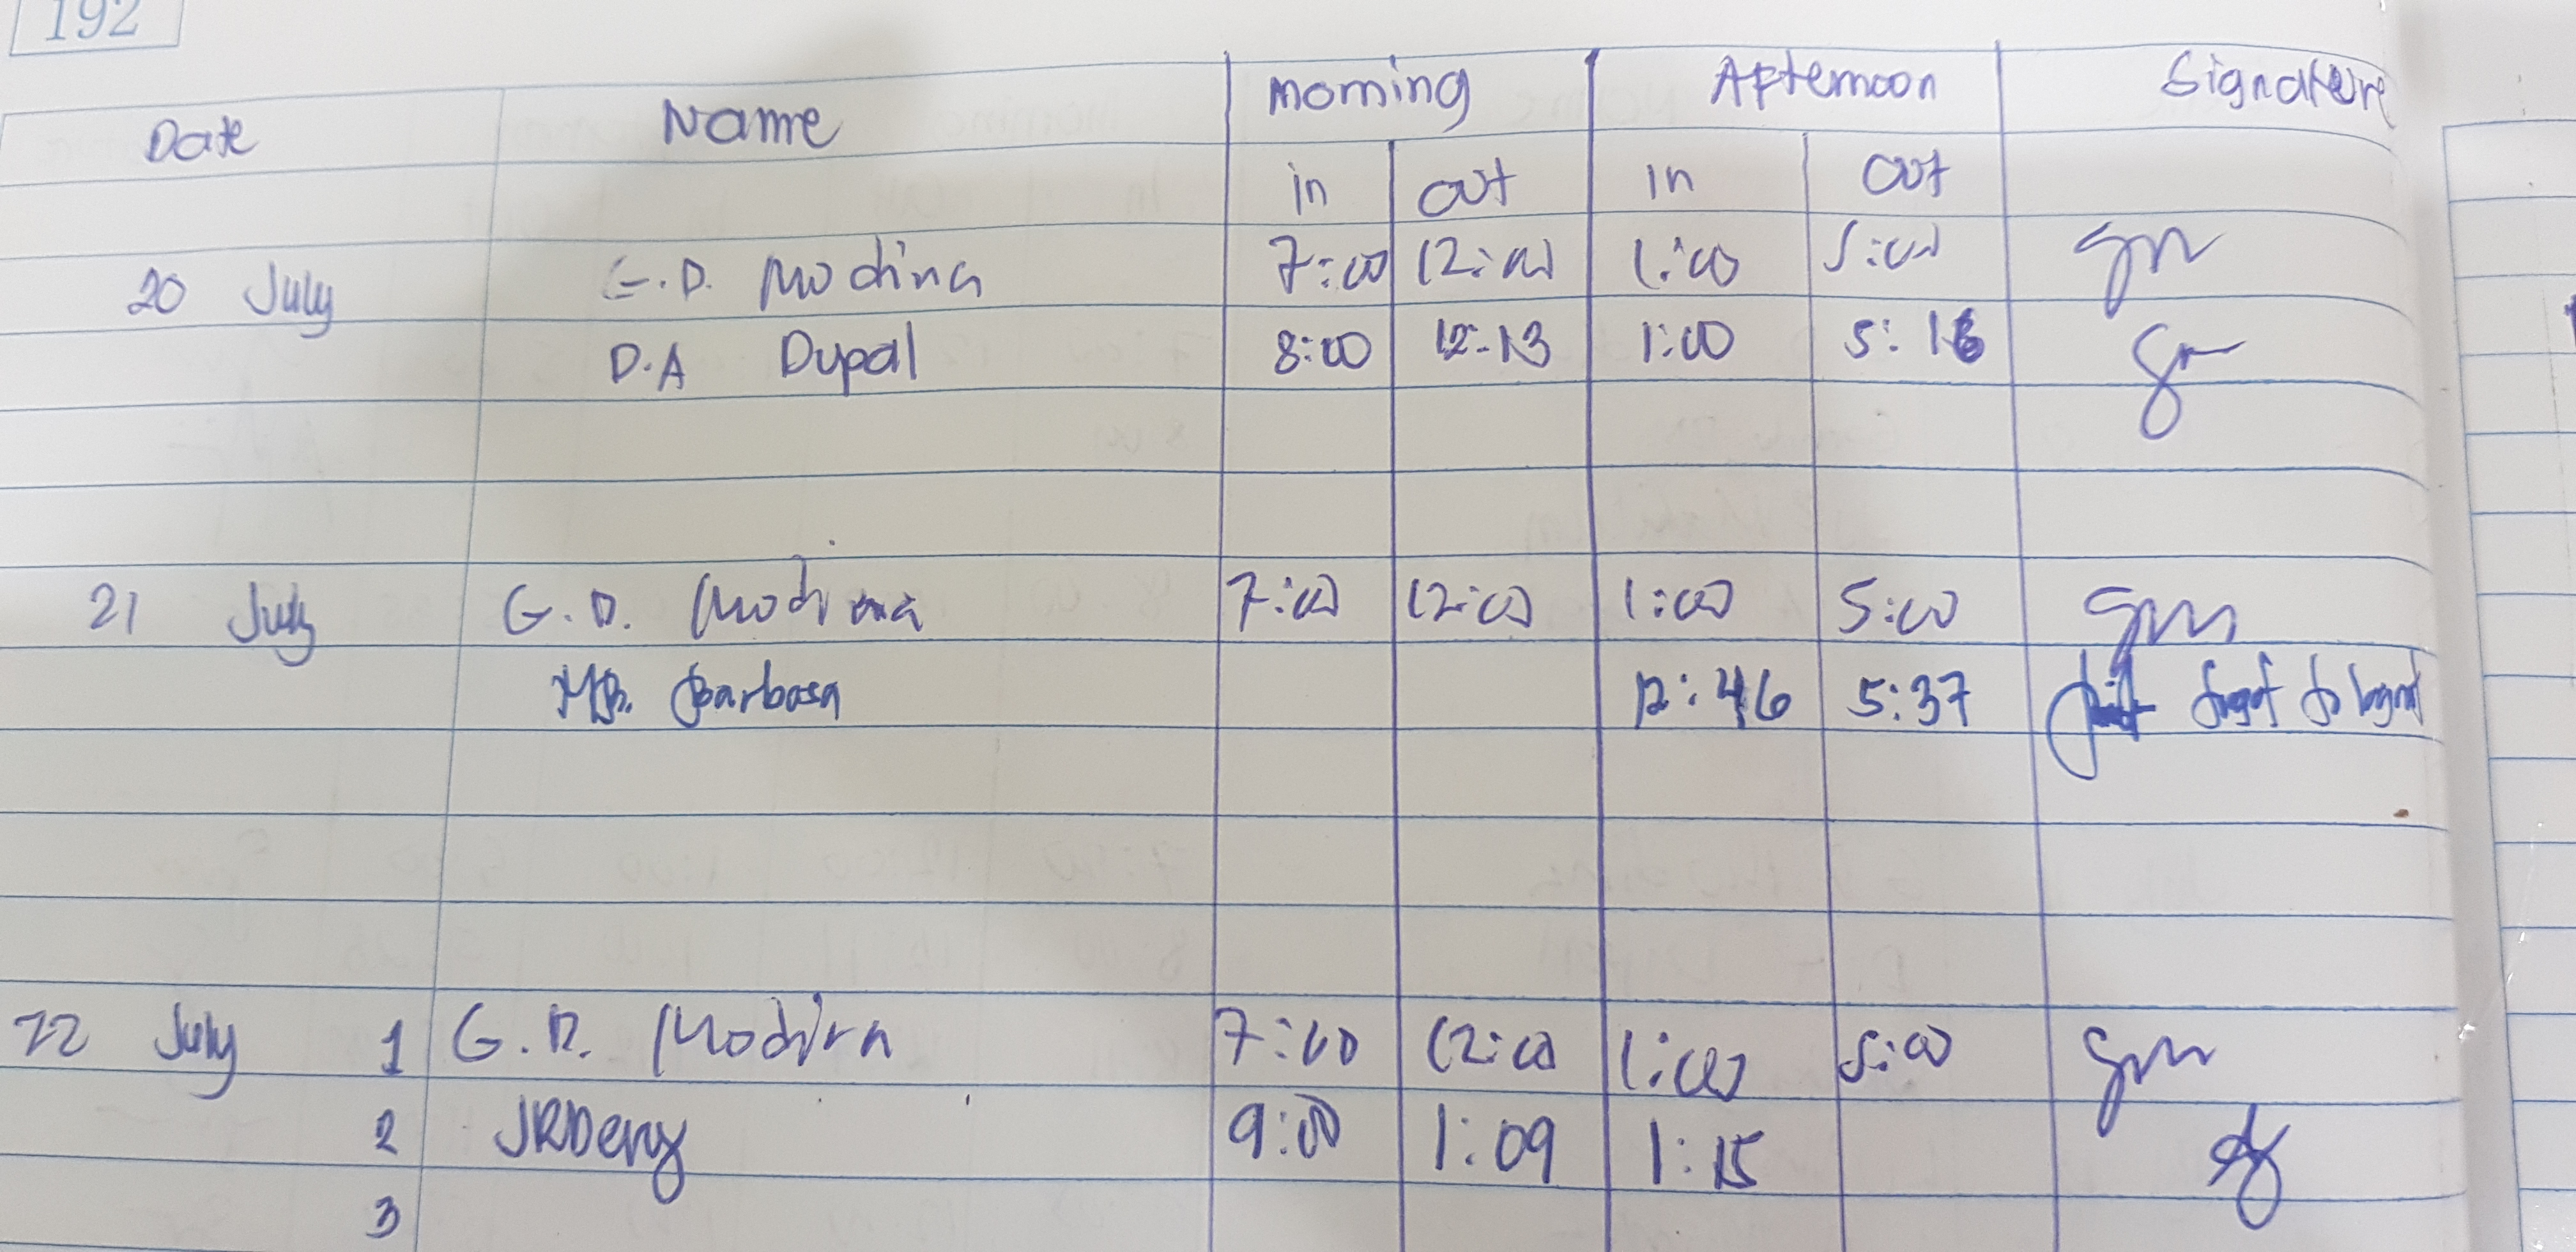 192
Date Name Morning Afternoon Signature
in out in out
20 July G.D. Modina 7:00 12:00 1:00 5:00
D.A Dupal 8:00 12:13 1:00 5:16
21 July G.D. Modina 7:00 12:00 1:00 5:00
Barbosa 12:46 5:37 forgot to logout
22 July 1 G.D. Modina 7:00 12:00 1:00 5:00
2 JRDeny 9:00 1:09 1:15
3